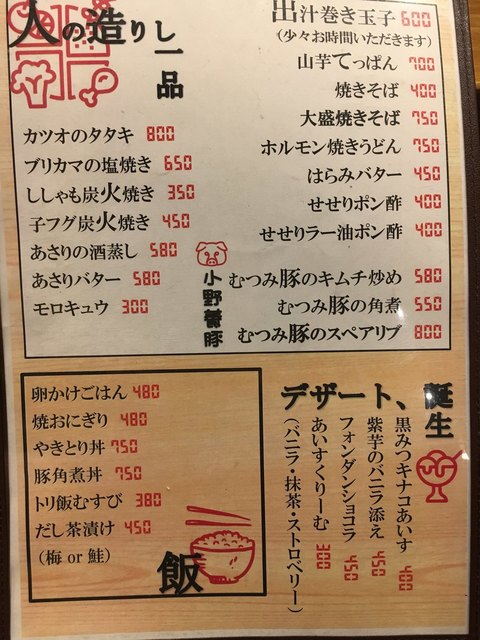 人の造りし
一品
出汁巻き玉子 600
(少々お時間いただきます)
山芋てっぱん 700
焼きそば 400
大盛焼きそば 750
ホルモン焼きうどん 750
はらみバター 450
せせりポン酢 400
せせりラー油ポン酢 400
カツオのタタキ 800
ブリカマの塩焼き 650
ししゃも炭火焼き 350
子フグ炭火焼き 450
あさりの酒蒸し 580
あさりバター 580
モロキュウ 300
小野養豚
むつみ豚のキムチ炒め 580
むつみ豚の角煮 550
むつみ豚のスペアリブ 800
卵かけごはん 480
焼おにぎり 480
やきとり丼 750
豚角煮丼 750
トリ飯むすび 380
だし茶漬け 450
(梅 or 鮭)
飯
デザート、
誕生
黒みつキナコあいす 400
紫芋のバニラ添え 450
フォンダンショコラ 450
あいすくりーむ 300
(バニラ・抹茶・ストロベリー)